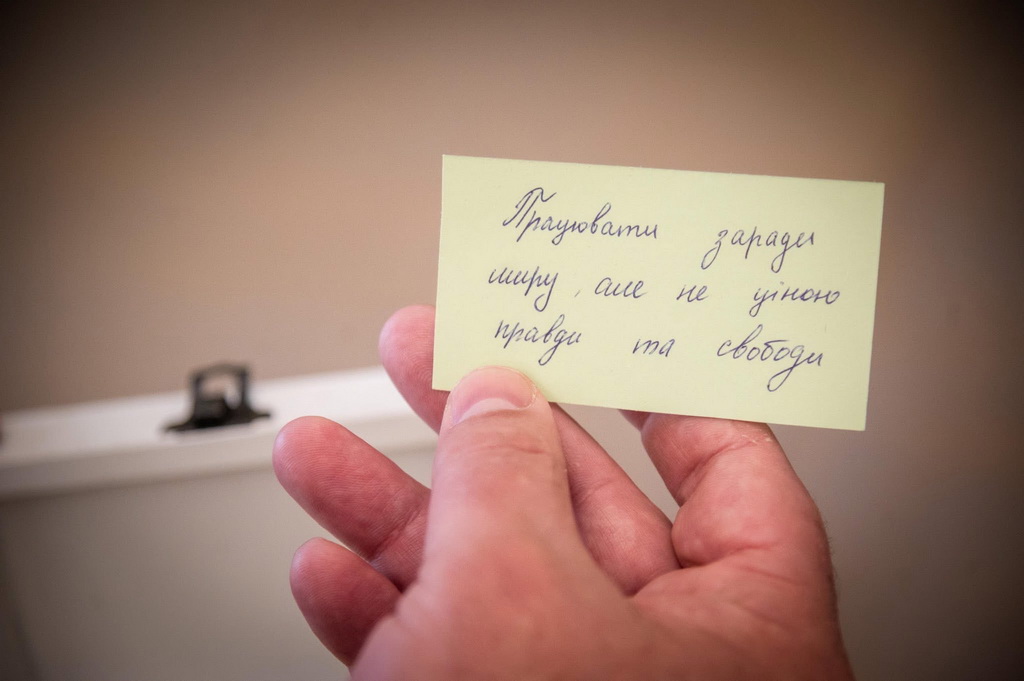 Працювати заради
миру, але не ціною
правди та свободи